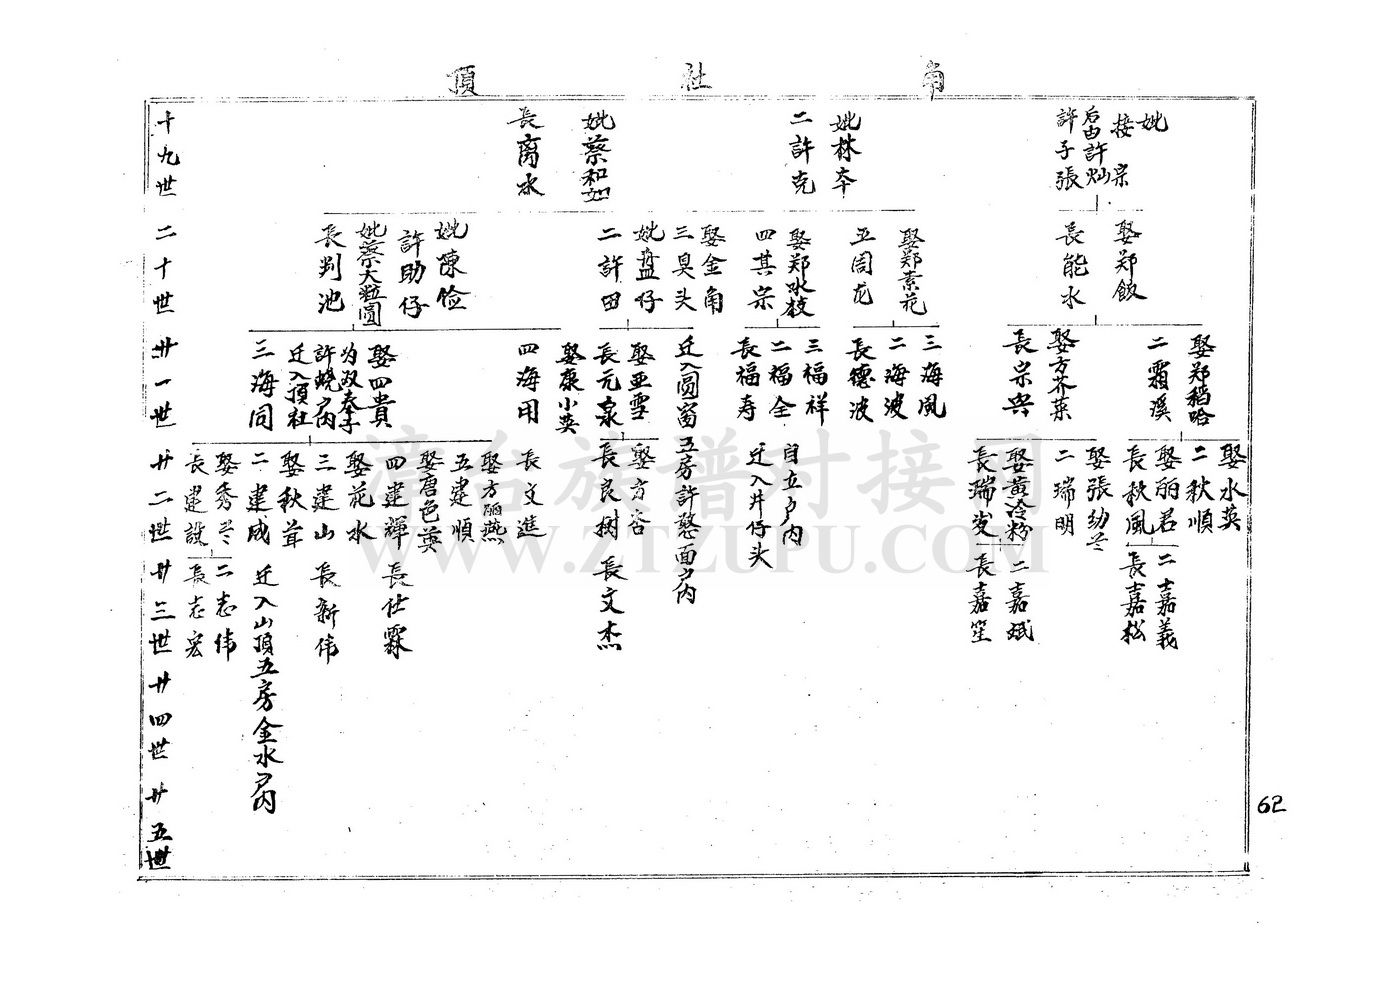 頂社角
十九世
妣
接宗
后由許灿
許子張
妣林夲
二許克
妣蔡和如
長离水
二十世
娶郑飯
長能水
娶郑素花
五周龙
娶郑水枝
四其宗
娶金角
三臭头
妣盐仔
二許田
妣陳俭
許助仔
妣蔡大粒圆
長判池
廿一世
娶郑稻哈
二霜溪
娶方芥菜
長宗兴
三海風
二海波
長德波
三福祥
二福全
長福寿
迁入圆窗五房許憨面户内
娶亚雪
長元泉
娶康小英
四海用
娶四貴
为双奉子
許蟯户内
迁入頂社
三海同
廿二世
娶水英
二秋順
娶丽君
長秋風
娶張幼兰
二瑞明
娶黄冷粉
長瑞发
自立户内
迁入井仔头
娶方容
長良樹
長文進
娶方丽燕
五建順
娶唐色英
四建輝
娶花水
三建山
娶秋茸
二建成
娶秀兰
長建設
廿三世
二嘉義
長嘉松
二嘉斌
長嘉笙
長文杰
長仕霖
長新伟
迁入山頂五房金水户内
二志伟
長志宏
廿四世
廿五世
62
漳台族谱对接网
WWW.ZTZUPU.COM